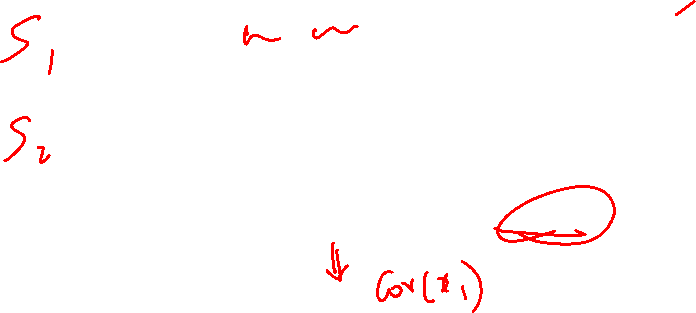 S₁
S₂
⇓ Cov(x₁)